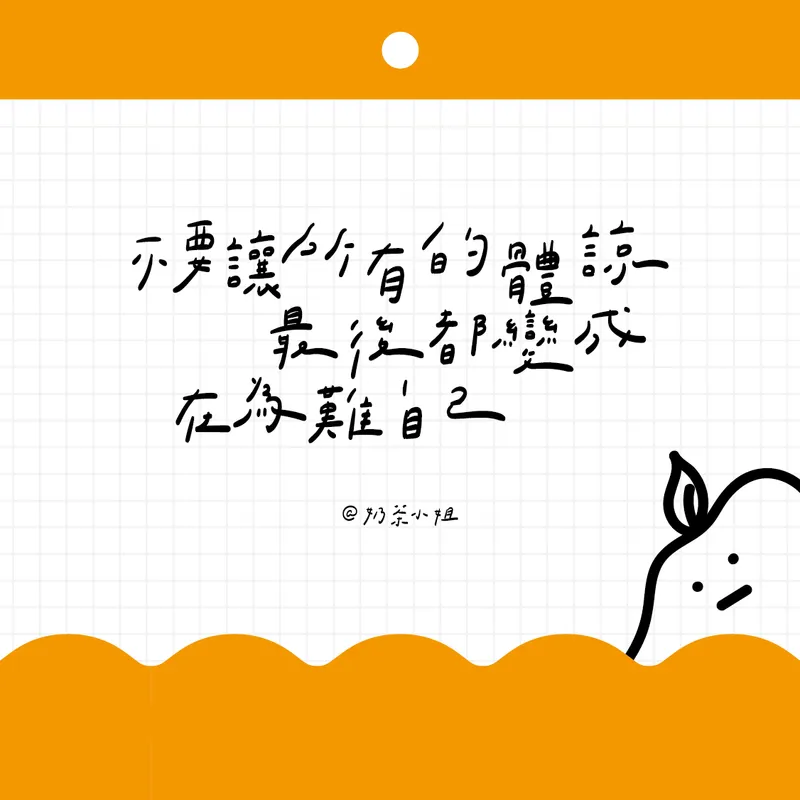 不要讓所有的體諒
最後都變成
在為難自己
@奶茶小姐